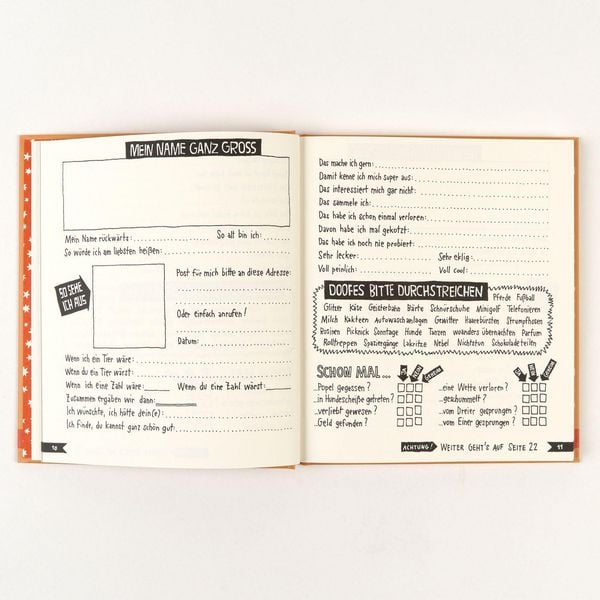 MEIN NAME GANZ GROSS
Mein Name rückwärts: So alt bin ich:
So würde ich am liebsten heißen:
SO SEHE ICH AUS
Post für mich bitte an diese Adresse:
Oder einfach anrufen!
Datum:
Wenn ich ein Tier wäre:
Wenn du ein Tier wärst:
Wenn ich eine Zahl wäre: Wenn du eine Zahl wärst:
Zusammen ergäben wir dann:
Ich wünschte, ich hätte dein(e):
Ich finde, du kannst ganz schön gut:
10
Das mache ich gern:
Damit kenne ich mich super aus:
Das interessiert mich gar nicht:
Das sammele ich:
Das habe ich schon einmal verloren:
Davon habe ich mal gekotzt:
Das habe ich noch nie probiert:
Sehr lecker: Sehr eklig:
Voll peinlich: Voll cool:
DOOFES BITTE DURCHSTREICHEN Pferde Fußball
Glitzer Käse Geisterbahn Bärte Schnürschuhe Minigolf Telefonieren
Milch Kakteen Autowaschanlagen Gewitter Haarebürsten Strumpfhosen
Rosinen Picknick Sonntage Hunde Tanzen woanders übernachten Parfum
Rolltreppen Spaziergänge Lakritze Nebel Nichtstun Schokoladeneis
SCHON MAL...
...Popel gegessen? ...eine Wette verloren?
...in Hundescheiße getreten? ...geschummelt?
...verliebt gewesen? ...vom Dreier gesprungen?
...Geld gefunden? ...vom Einer gesprungen?
ACHTUNG! WEITER GEHT'S AUF SEITE 22
11